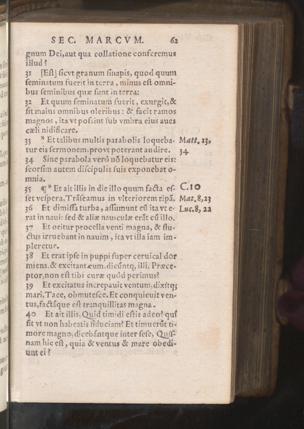 SEC. MARCVM. 62
gnum Dei, aut qua collatione conferemus
illud?
31 [Est] sicut granum sinapis, quod quum
seminatum fuerit in terra, minus est omni-
bus seminibus quæ sunt in terra:
32 Et quum seminatum fuerit, exurgit, &
fit maius omnibus oleribus: & facit ramos
magnos, ita vt possint sub vmbra eius aues
cæli nidificare.
33 * Et talibus multis parabolis loqueba- Matt. 13,
tur eis sermonem, prout poterant audire. 34
34 Sine parabola verò nō loquebatur eis:
seorsim autem discipulis suis exponebat
omnia.
35 ¶ * Et ait illis in die illo quum facta es- C.10
set vespera, Trāseamus in vlteriorem ripā. Mat. 8,23
36 Et dimissa turba, assumunt eū ita vt e- Luc. 8, 22
rat in naui: sed & aliæ nauiculæ erāt cū illo.
37 Et oritur procella venti magna, & flu-
ctus irruebant in nauim, ita vt illa iam im-
pleretur.
38 Et erat ipse in puppi super ceruical dor
miens. & excitant eum, dicūtq; illi, Præce-
ptor, non est tibi curæ quòd perimus?
39 Et excitatus increpauit ventum, dixitq;
mari, Tace, obmutesce. Et conquieuit ven-
tus, factáque est tranquillitas magna.
40 Et ait illis, Quid timidi estis adeo? quî
fit vt non habeatis fiduciam? Et timuerūt ti-
more magno, dicebántque inter sese, Quis-
nam hic est, quia & ventus & mare obedi-
unt ei?